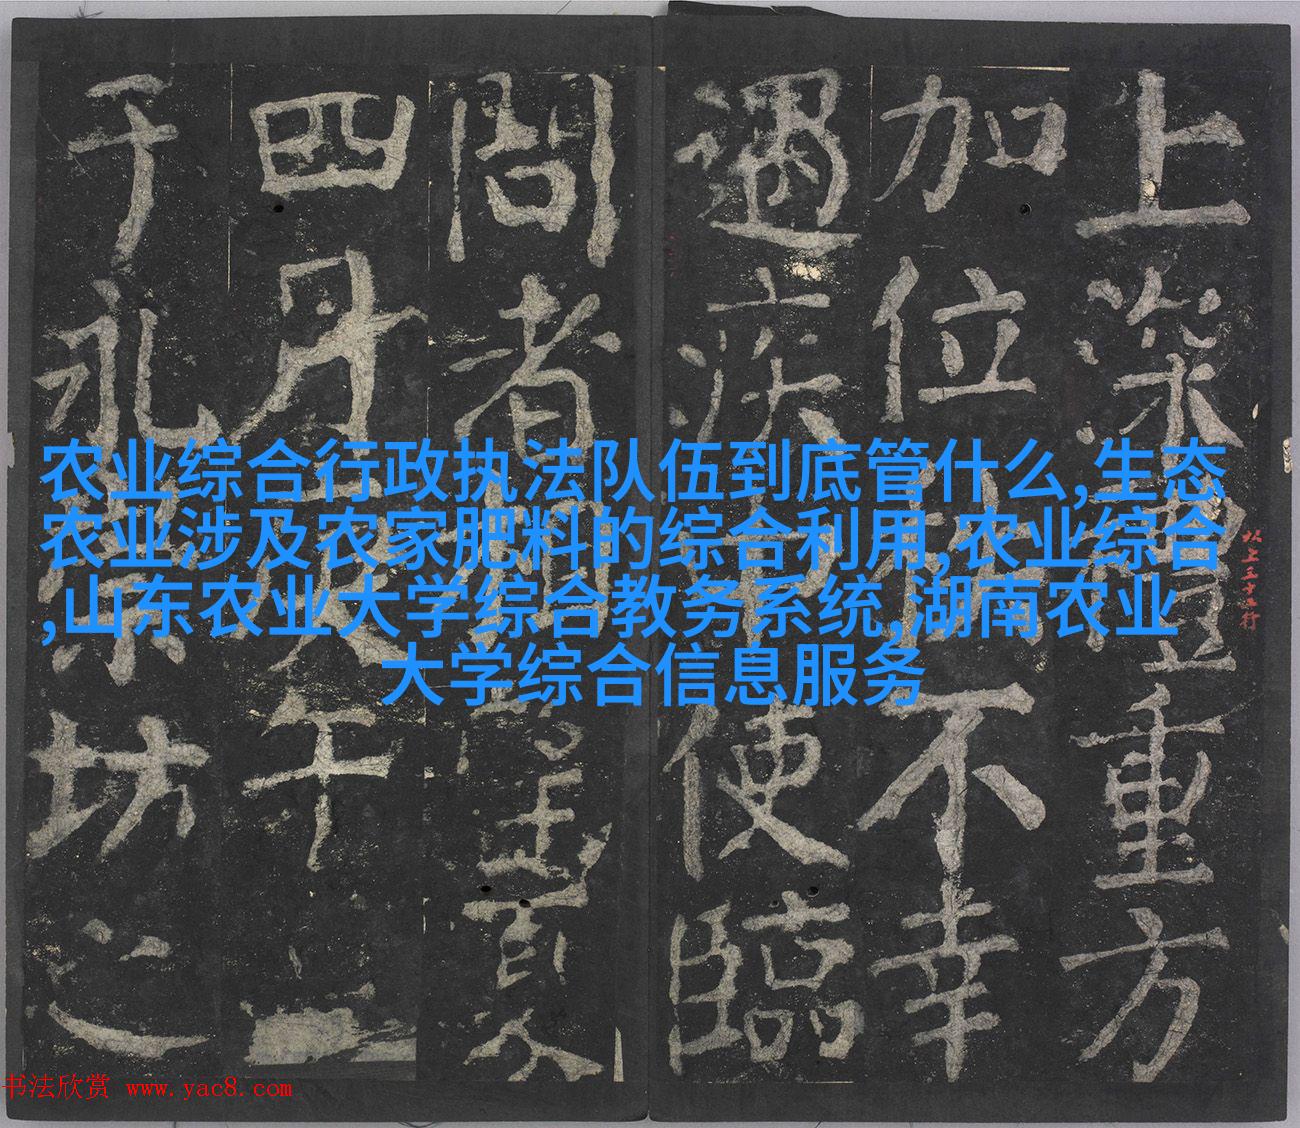 农业综合行政执法队伍到底管什么,生态
农业涉及农家肥料的综合利用,农业综合
,山东农业大学综合教务系统,湖南农业
大学综合信息服务
上深重方
加位不幸
遇疾使臨
問者望夏
四月午
于永崇坊之
书法欣赏 www.yac8.com